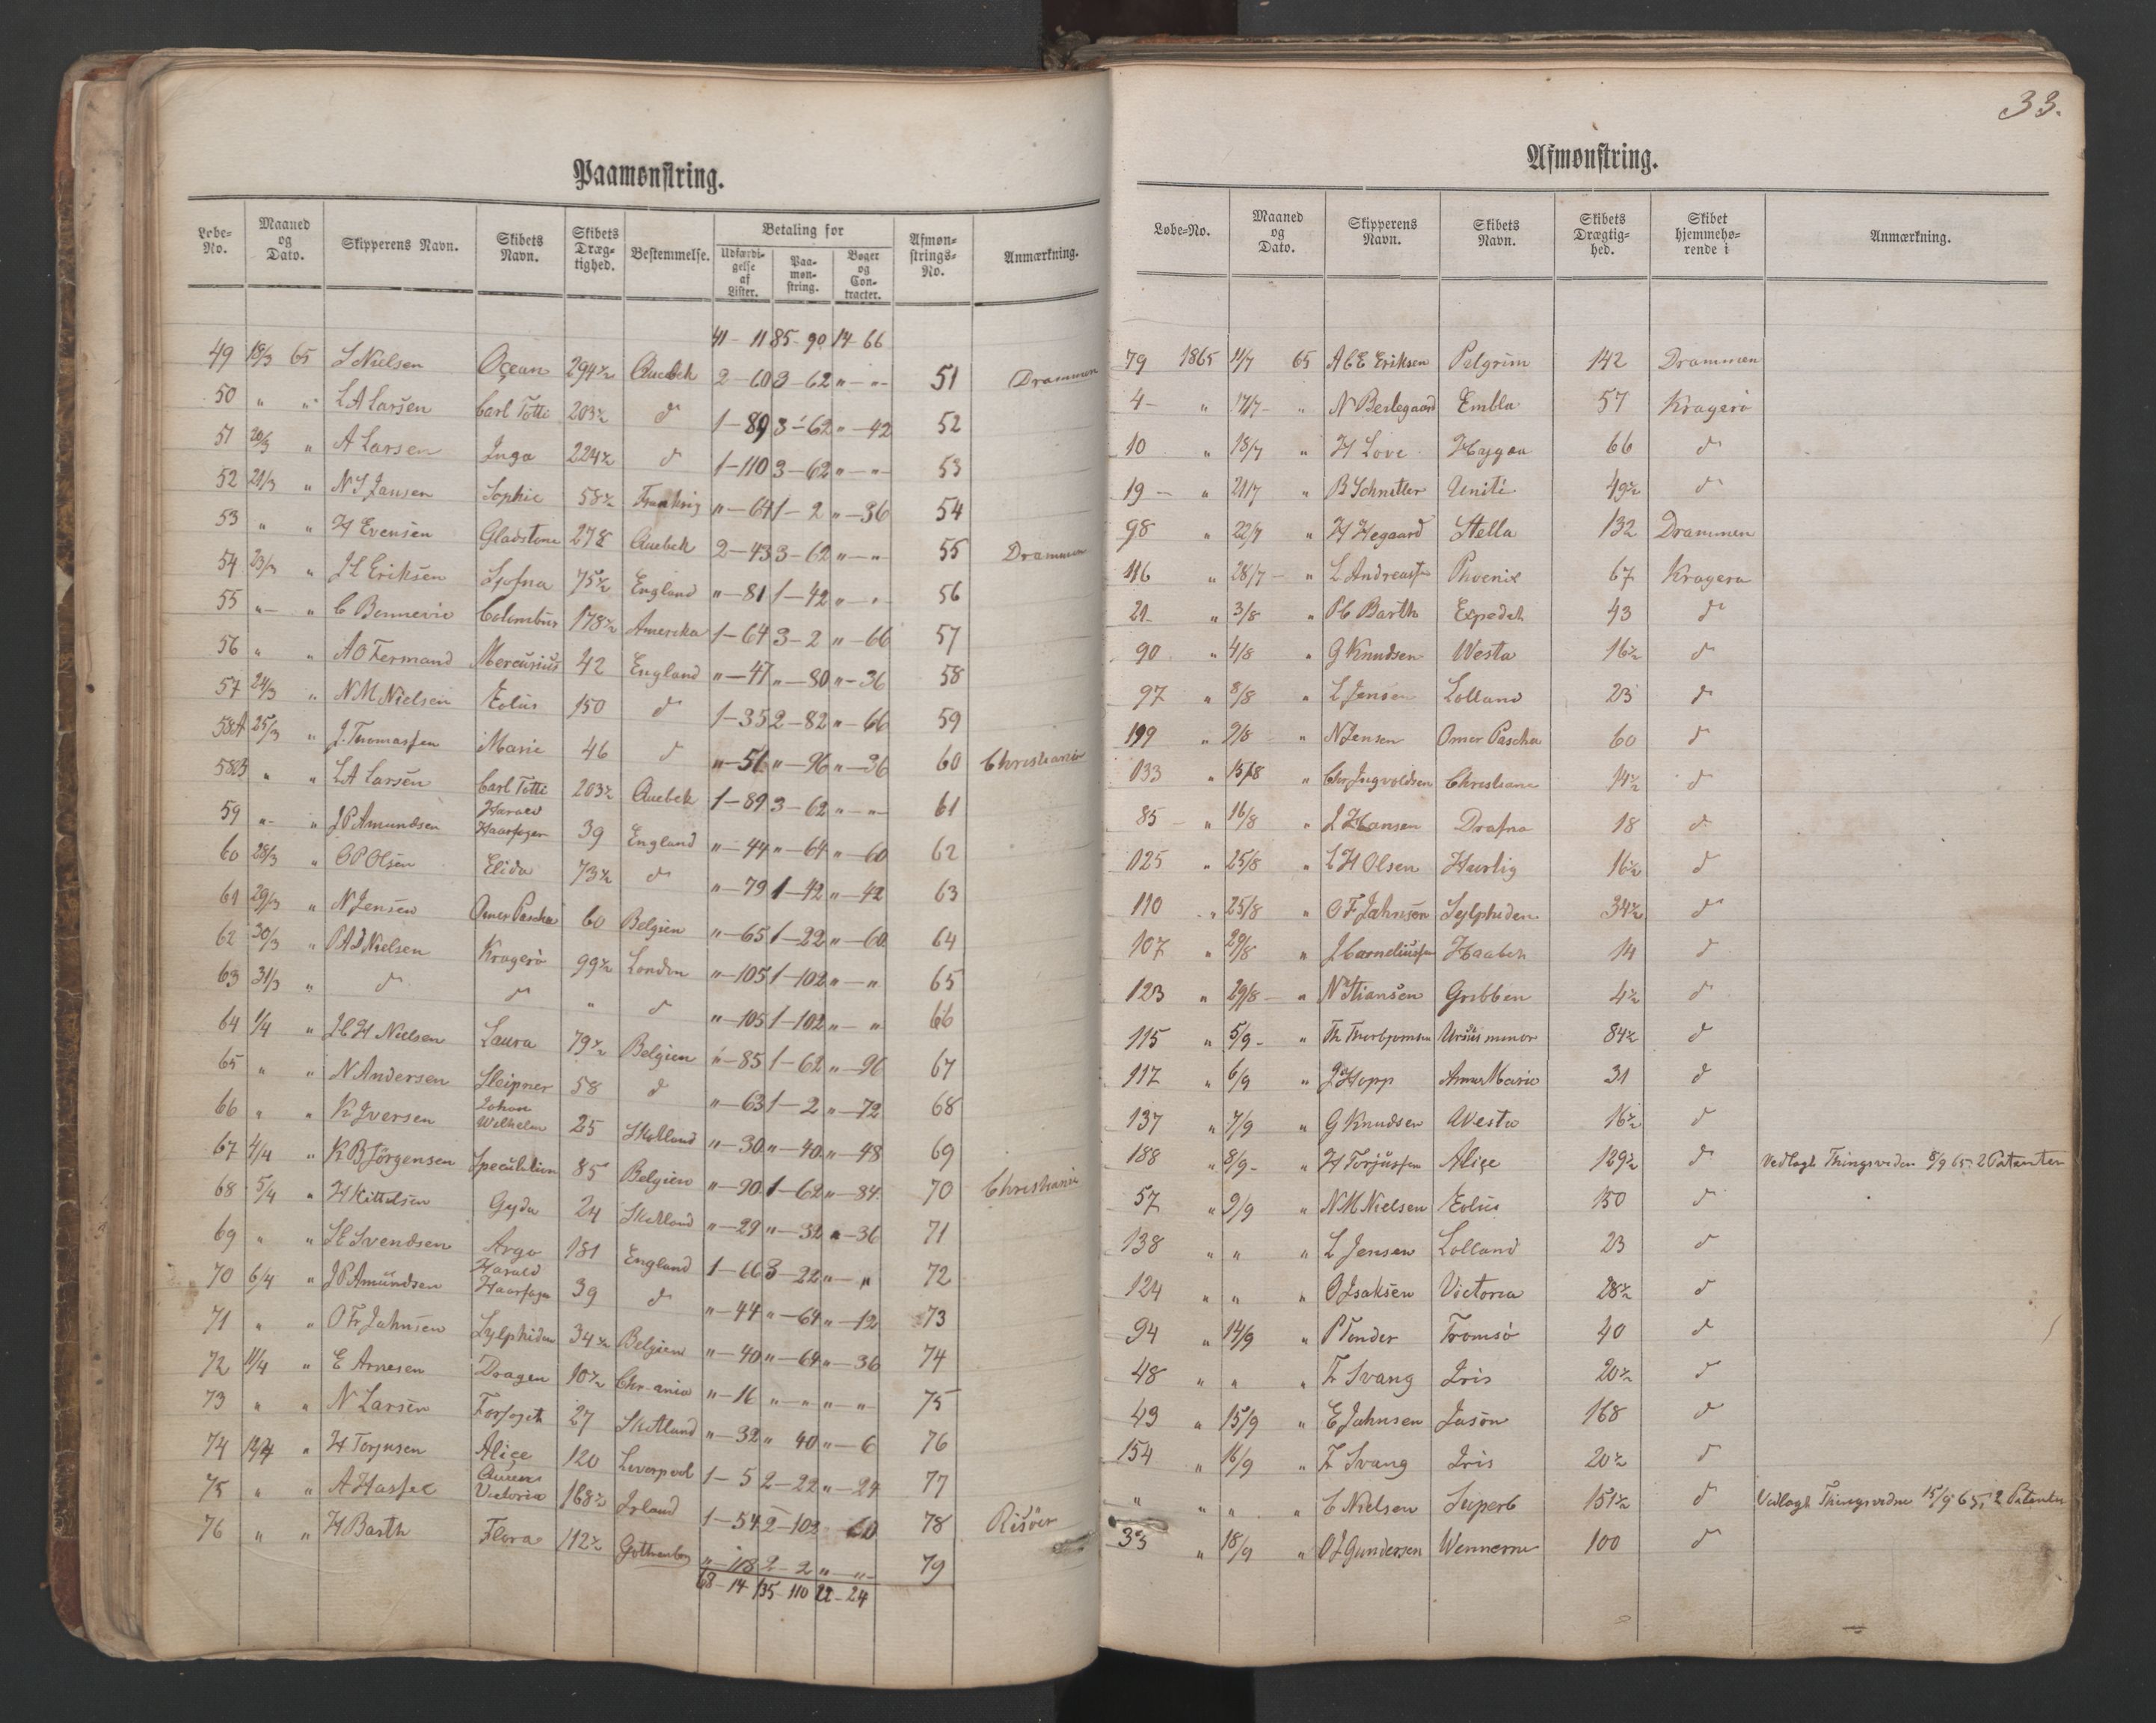 33.
Paamønstring.
Løbe-No. | Maaned og Dato. | Skipperens Navn. | Skibets Navn. | Skibets Drægtighed. | Bestemmelse. | Betaling for Udfærdigelse af Lister. | Paamønstring. | Bøger og Contracter. | Afmønstrings-No. | Anmærkning.
41-11 85-90 14-66
49 19/3 65 S Nielsen Oçean 294½ Quebek 2-60 3-62 "-"- 51 Drammen
50 " " L A Larsen Carl Totti 203½ d 1-89 3-62 "-42 52
51 20/3 " A Larsen Inga 224½ d 1-110 3-62 "-"- 53
52 21/3 " N S Jansen Sophie 58½ Frankrig "-64 1-2 "-36 54
53 " " H Evensen Gladstone 278 Quebek 2-43 3-62 "-"- 55 Drammen
54 23/3 " J L Eriksen 75½ England "-81 1-42 "-"- 56
55 "- " C Bennevie Columbus 178½ Amerika 1-64 3-2 "-66 57
56 " " A O Fermand Mercurius 42 England "-47 "-80 "-36 58
57 24/3 " N M Nielsen Eolus 150 d 1-35 2-82 "-66 59
58A 25/3 " J. Thomassen Marie 46 d "-51 "-96 "-36 60 Christiania
58B " " L A Larsen Carl Totti 203½ Quebek 1-89 3-62 "-"- 61
59 "- " J P Amundsen Harald Haarfager 39 England "-44 "-64 "-60 62
60 28/3 " O P Olsen Elida 73½ d "-79 1-42 "-42 63
61 29/3 " N Jensen Omer Pascha 60 Belgien "-65 1-22 "-60 64
62 30/3 " P A J Nielsen Kragerö 99½ London "-105 1-102 "-" 65
63 31/3 " d d " d "-105 1-102 "-" 66
64 1/4 " J C H Nielsen Laura 79½ Belgien "-85 1-62 "-96 67
65 " " N Andersen Sleipner 58 d "-63 1-2 "-72 68
66 " " K Iversen Johan Wilhelm 25 Skotland "-30 "-40 "-48 69
67 4/4 " K B Jörgensen Speculation 85 Belgien "-90 1-62 "-84 70 Christiania
68 5/4 " H Kittelsen Gyda 24 Skotland "-29 "-32 "-36 71
69 " " Svendsen Argo 181 England 1-66 3-22 "-" 72
70 6/4 " J P Amundsen Harald Haarfager 39 d "-44 "-64 "-12 73
71 " " O Fr Jahnsen Sylphiden 34½ Belgien "-40 "-64 "-36 74
72 11/4 " E Arnesen Dragen 10½ Chr-ania "-16 "-" "-"- 75
73 " " N Larsen Forsøget 27 Skotland "-32 " 40 "-6 76
74 12/4 " H Torjusen Aliçe 120 Leverpool 1-5 2-22 "-24 77
75 " " A Hassel Queen Victoria 168½ Irland 1-54 2-102 -60 78 Risöer
76 " " H Barth Flora 112½ Gothenborg "-118 2-2 "-"- 79
68-14 135-110 22-24
Afmønstring.
Løbe-No. | Maaned og Dato. | Skipperens Navn. | Skibets Navn. | Skibets Drægtighed. | Skibet hjemmehørende i | Anmærkning.
79 1865 11/7 65 A C E Eriksen Pelgrim 142 Drammen
4- " 17/7- " N Beslegaard Embla 57 Kragerö
10 " 18/7 " H Love Haygaa 66 d
19- " 21/7 " B Schnitler Unité 49½ d
98 " 22/7 " H Hegaard Stella 132 Drammen
116 " 28/7- " L Andreassen Phoenix 67 Kragerø
21- " 3/8 " P C Barth Expedit 43 d
90 " 4/8 " G Knudsen Westa 16½ d
97 " 8/8 " L Jensen Lolland 23 d
199 " 9/8 " N Jensen Omer Pascha 60 d
133 " 15/8 " Chr Ingvoldsen Christiane 14½ d
85- " 16/8 " J Hansen Drafna 18 d
125 " 25/8 " L H Olsen Hurtig 16½ d
110 " 25/8 " O F Jahnsen Sylphiden 34½ d
107 " 29/8 " J Corneliussen Haabet 14 d
123 " 29/8- " N Stiansen Gribben 4½ d
115 " 5/9- " Th Thorbjornsen Ursus minor 84½ d
117 " 6/9 " J Hopp Anna Marie 31 d
137 " 7/9 " G Knudsen Westa 16½ d
188 " 8/9- " H Torjussen Aliçe 129½ d Vedlagt Thingsviden 8/9 65. 2 Patenter
57 " 9/9 " N M Nielsen Eolus 150 d
138 " " " L Jensen Lolland 23 d
124 " " " O Isaksen Victoria 28½ d
94 " 14/9 " P Tonder Tromsö 40 d
48 " " " F Svang Iris 20½ d
43 " 15/9 " E Jahnsen Jason 168 d
154 " 16/9 " F Svang Iris 20½ d
" " " " C Nielsen Superb 151½ d Vedlagt Thingsvidne 15/9 65, 2 Patenter
33 " 18/9 " O J Gundersen Wennerne 100 d